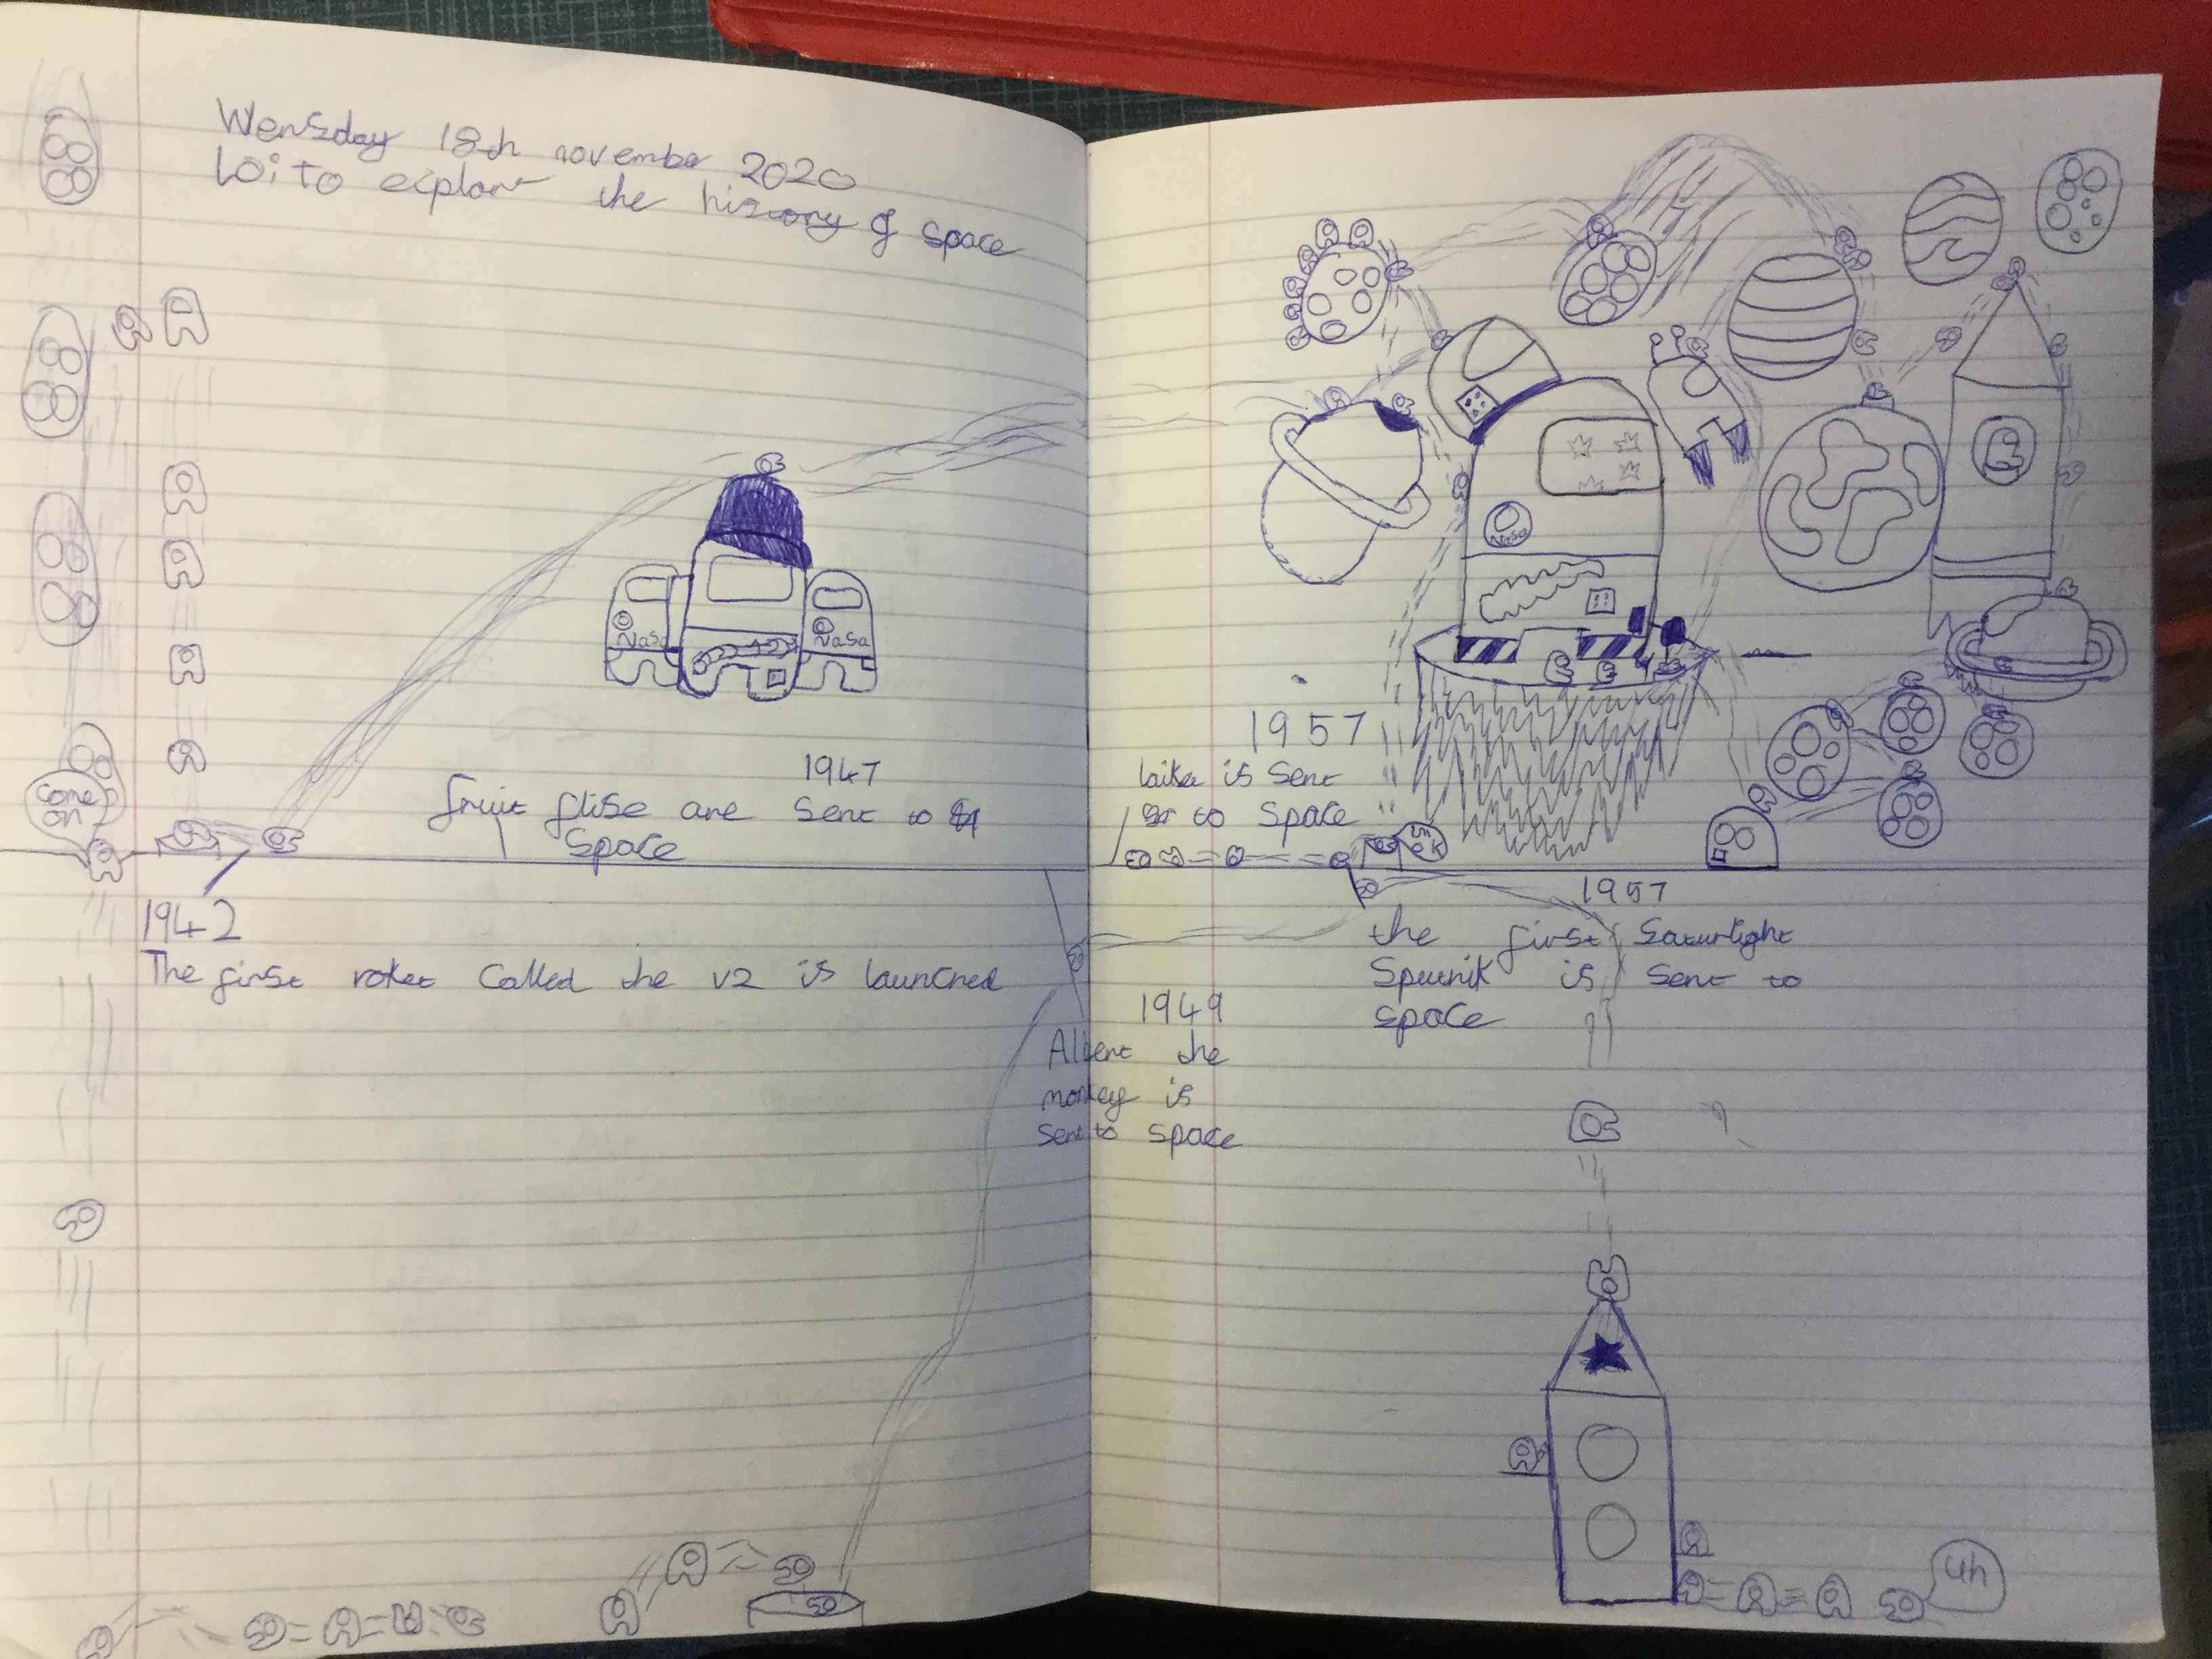 Wensday 18th november 2020
LO: To explore the history of space
Come on
Nasa
Nasa
1947
fruit flise are sent to
Space
1942
The first roket called the v2 is launched
Nasa
1957
laika is sent
to space
1949
Albert the
monkey is
sent to space
1957
the first Saturlight
Sputnik is sent to
space
uh